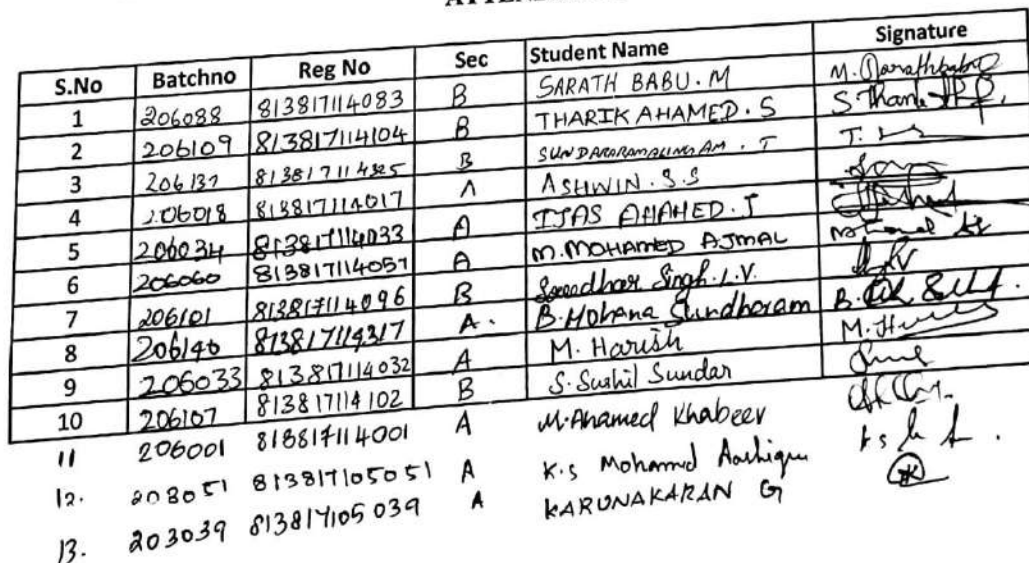 S.No Batchno Reg No Sec Student Name Signature
1 206088 813817114083 B SARATH BABU. M M. Sarathbabu
2 206109 813817114104 B THARIK AHAMED. S
3 206137 B SUNDARARAMALINGAM. T
4 206018 813817114017 A ASHWIN. S.S
5 206034 813817114033 A IJAS AHAMED. J
6 206060 813817114057 A M. MOHAMED AJMAL
7 206101 813817114096 B Sreedhar Singh. L.V.
8 206146 813817114317 A. B. Mohana Sundharam
9 206033 813817114032 A M. Harish
10 206107 813817114102 B S. Sushil Sundar
11 206001 813817114001 A M. Ahamed Khabeer
12. 203051 813817105051 A K.S Mohamed Aashique
13. 203039 813817105039 A KARUNAKARAN G